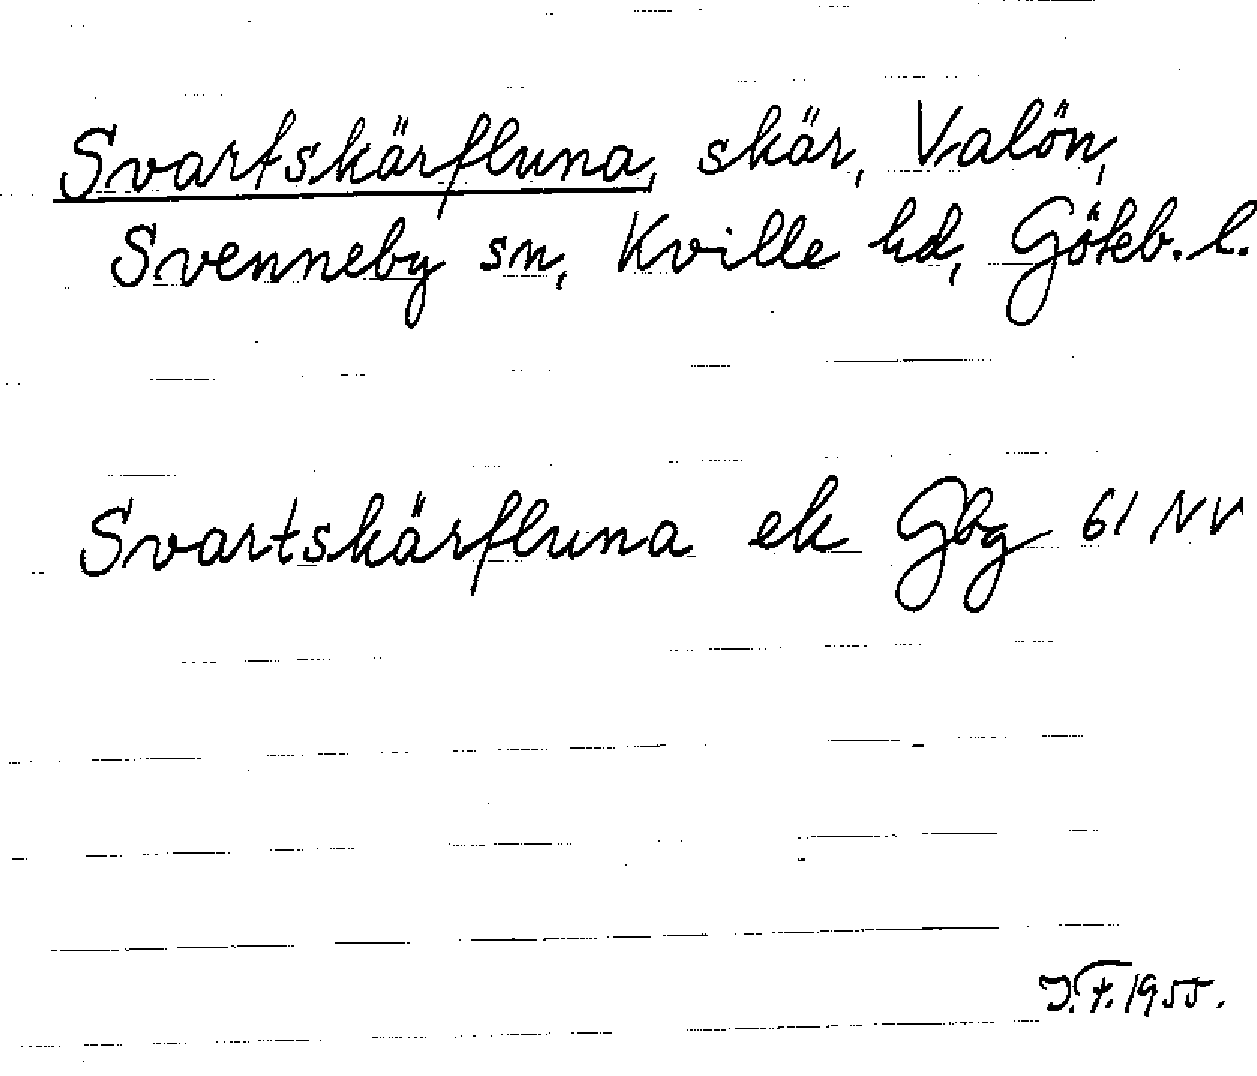 Svartskärfluna, skär, Valön,
Svenneby sn, Kville hd, Göteb. l.
Svartskärfluna ek Gbg 61 NV
J.F. 1955.